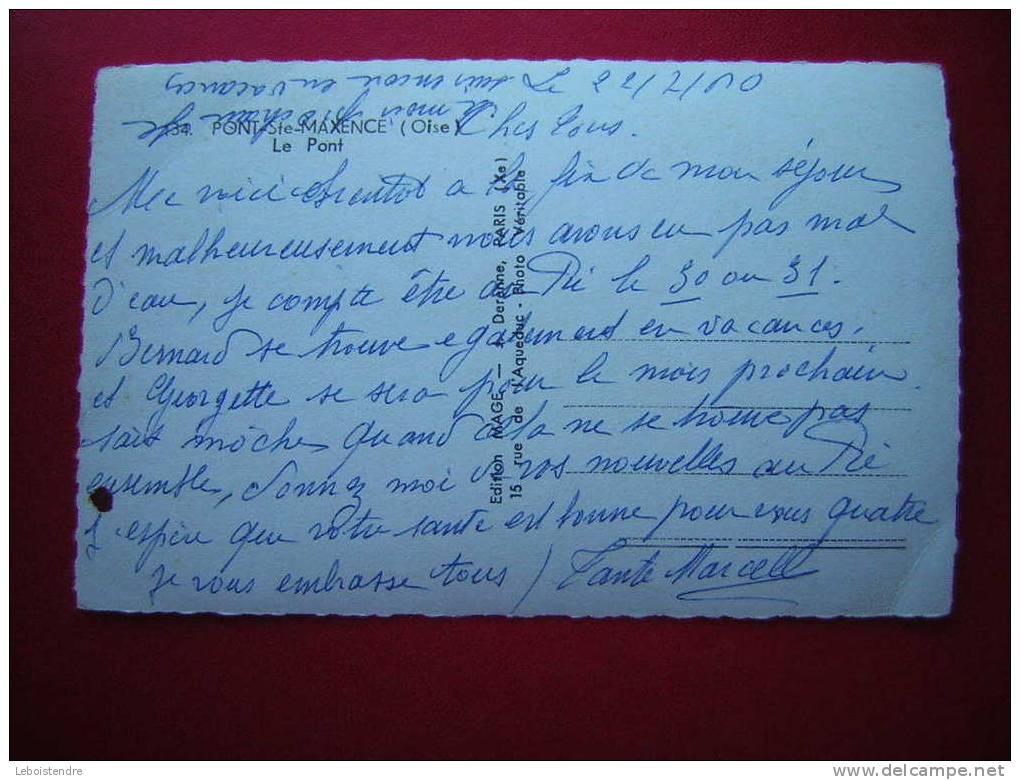 Le 22/7/60
34. PONT-Ste-MAXENCE (Oise)
Le Pont
Chers tous.
Me voici bientot a la fin de mon séjour
et malheureusement nous avons eu pas mal
d'eau, je compte être au Pré le 30 ou 31.
Bernard se trouve egalement en vacances.
et Georgette se sera pour le mois prochain
sait môche quand cela ne se trouve pas
ensemble, donnez moi d vos nouvelles au Pré
J espère que votre sante est bonne pour vous quatre
je vous embrasse tous / Tante Marcelle
le mois prochain je
suis encore en vacances
Edition MAGE — Derenne, PARIS (Xe)
15 rue de l'Aqueduc - Photo Véritable
Leboistendre
delcampe.net